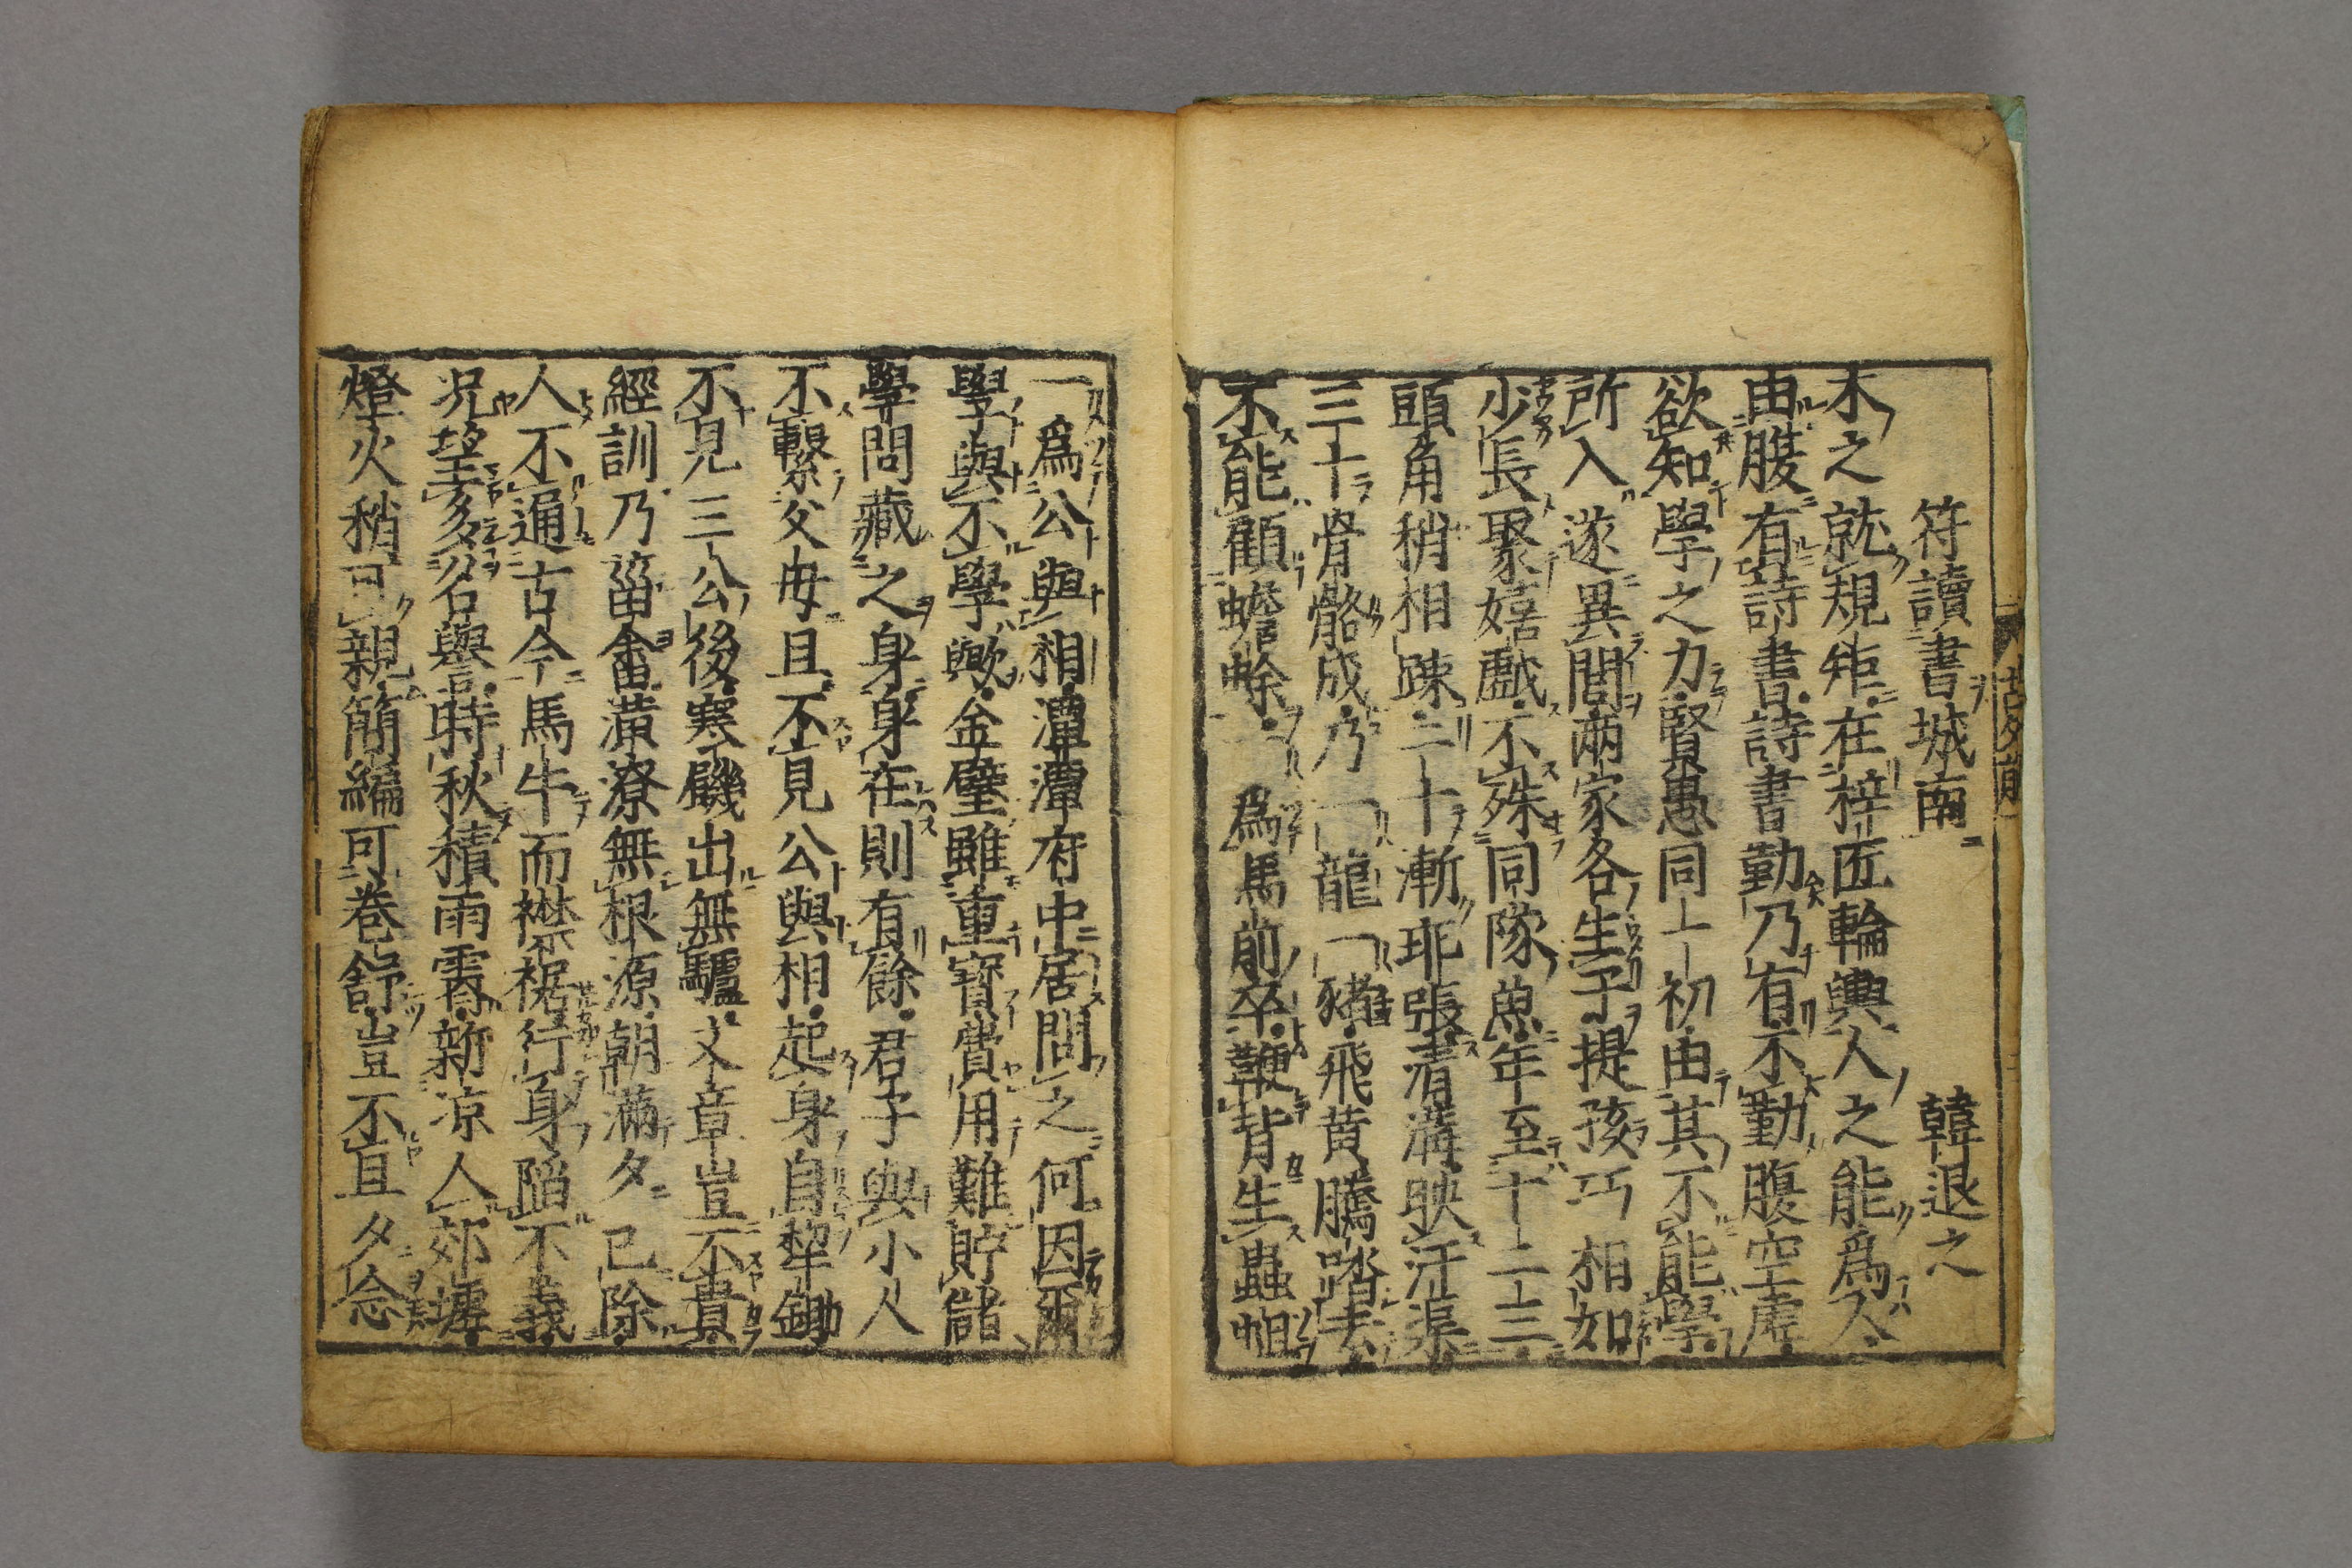 符讀書城南　韓退之
木之就規矩在梓匠輪輿人之能爲人
由腹有詩書詩書勤乃有不勤腹空虚
欲知學之力賢愚同一初由其不能學
所入遂異閭兩家各生子提孩巧相如
少長聚嬉戲不殊同隊魚年至十二三
頭角稍相疎二十漸乖張清溝映汙渠
三十骨骼成乃一龍一豬飛黄騰踏去
不能顧蟾蜍一爲馬前卒鞭背生蟲蛆
一爲公與相潭潭府中居問之何因爾
學與不學歟金璧雖重寶費用難貯儲
學問藏之身身在則有餘君子與小人
不繫父母且不見公與相起身自犂鋤
不見三公後寒饑出無驢文章豈不貴
經訓乃菑畬潢潦無根源朝滿夕已除
人不通古今馬牛而襟裾行身陷不義
况望多名譽時秋積雨霽新凉人郊墟
燈火稍可親簡編可卷舒豈不旦夕念